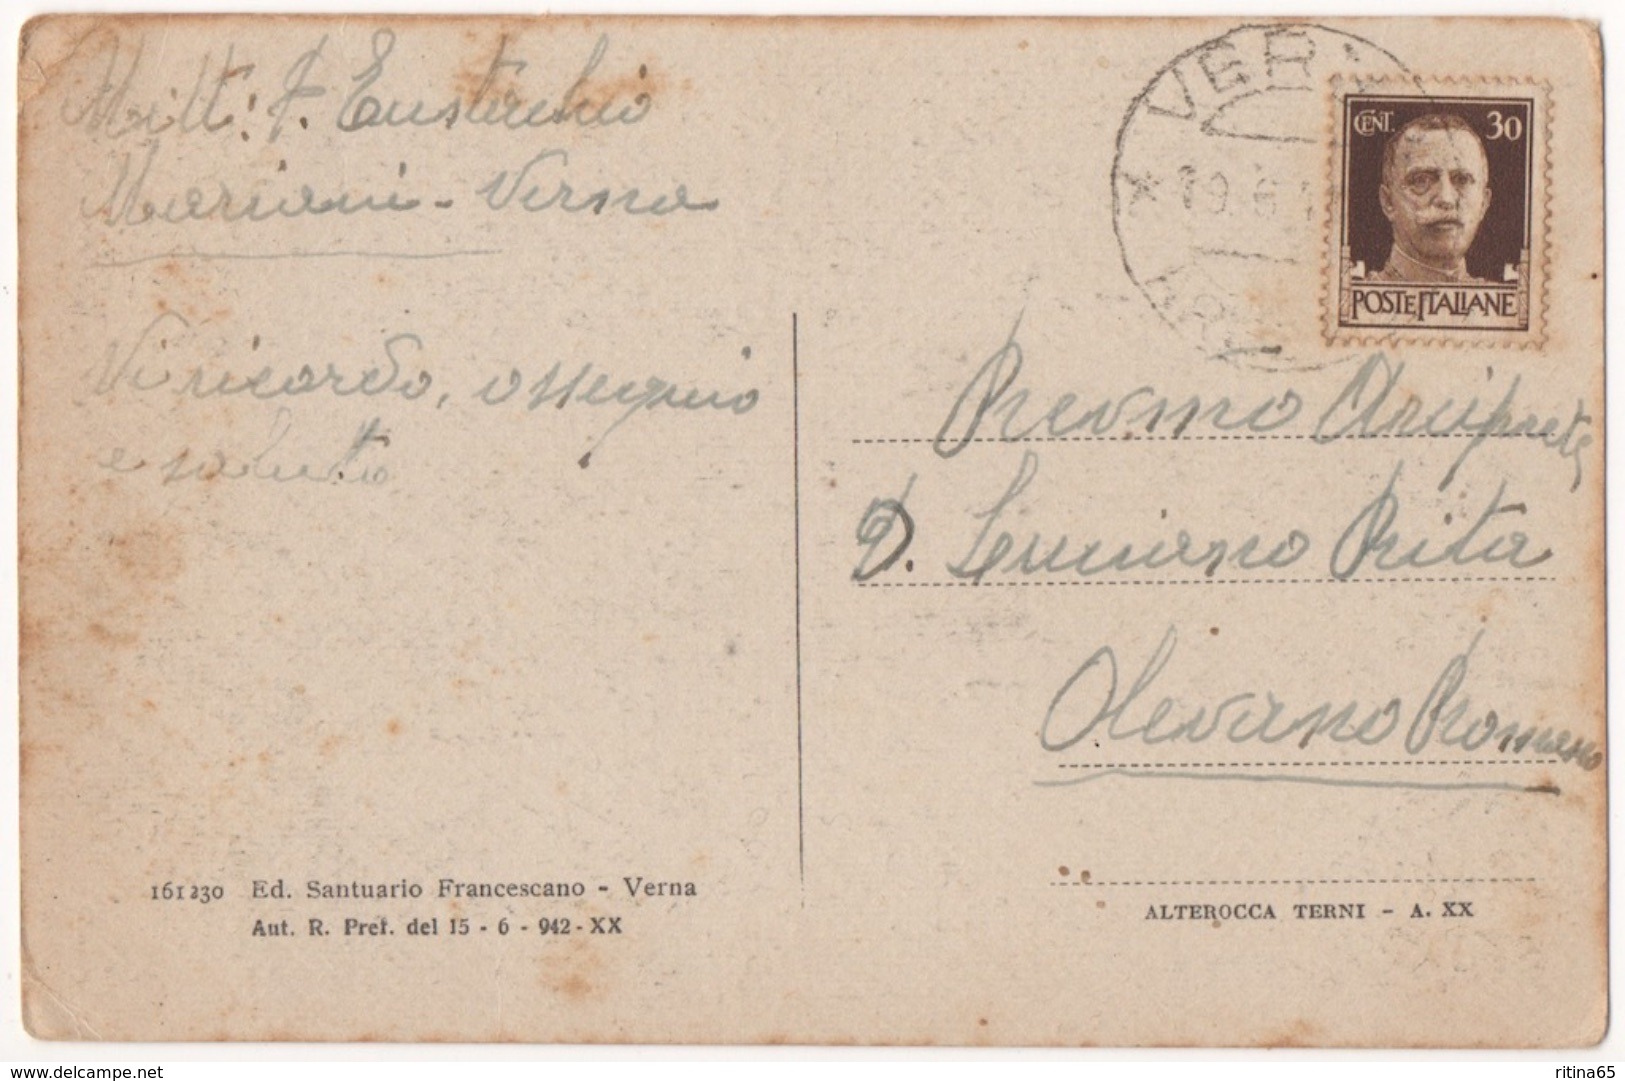 Mitt: F. Eustachio
Mariani - Verna
Vi ricordo, ossequio
e saluto
161230 Ed. Santuario Francescano - Verna
Aut. R. Pref. del 15 - 6 - 942 - XX
VERNA
* 19. 8.
CENT. 30
POSTE ITALIANE
Revmo Arciprete
D. Luciano Rita
Olevano Romano
ALTEROCCA TERNI - A. XX
www.delcampe.net
ritina65